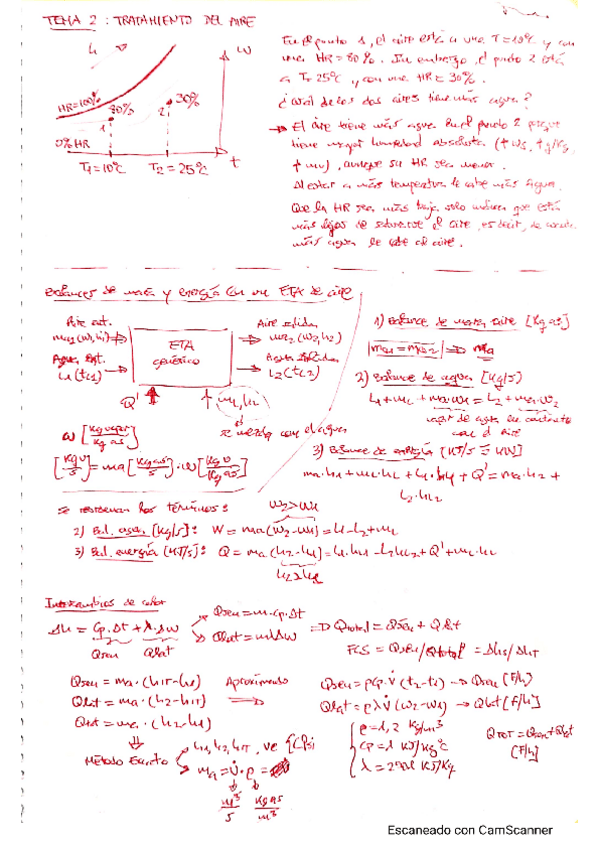 TEMA 2 : TRATAMIENTO DEL AIRE
h
W
HR=100%
80%
1
2
30%
0%HR
T1=10ºC
T2=25ºC
t
En el punto 1, el aire está a una T=10ºC y con
una HR=80%. Sin embargo, el punto 2 está
a T=25ºC, y con una HR=30%.
¿Cuál de los dos aires tiene más agua?
→ El aire tiene más agua en el punto 2 porque
tiene mayor humedad absoluta
, aunque su HR sea menor.
Al estar a más temperatura le cabe más agua.
Que la HR sea más baja, solo indica que está
más lejos de saturarse el aire, es decir, de
más agua le cabe al aire.
Balances de masa y energía en una ETA de aire
Aire ent.
ma1(w1,h1)
Agua Ent.
L1(tL1)
ETA
genérico
Aire salida
ma2(w2,h2)
Agua salida
L2(tL2)
Q'
mL,hL
se mezcla con el agua
W [kg vapor / kg as]
[kg v / s] = ma [kg as / s] · w [kg v / kg as]
1) Balance de masa aire [kg as]
ma1 = ma2 ⇒ ma
2) Balance de agua [kg/s]
L1+mL+ma·w1 = L2+ma·w2
vapor de agua en contacto
con el aire
3) Balance de energía [kJ/s = kW]
ma·h1+mL·hL+L1·hL1+Q' = ma·h2+
L2·hL2
se reordenan los términos:
w2>w1
2) Bal. agua [kg/s]: W = ma(w2-w1) = L1-L2+mL
3) Bal. energía [kJ/s]: Q = ma(h2-h1) = L1·hL1-L2hL2+Q'+mL·hL
h2>h1
Intercambios de calor
Δh = Cp·Δt + λ·Δw
Qsen Qlat
Qsen=m·cp·Δt
Qlat=mλΔw
⇒ Qtotal = Qsen + Qlat
FCS = Qsen/Qtotal = Δhs/ΔhT
Qsen = ma·(h1T-h1)
Qlat = ma·(h2-h1T)
Qtot = ma·(h2-h1)
Aproximado
Qsen = ρcp·V̇(t2-t1) → Qsen [F/h]
Qlat = ρλV̇(w2-w1) → Qlat [F/h]
QTOT = Qsen+Qlat
[F/h]
Método Exacto
h1,h2,h1T, ve
ma = V̇·ρ =
m³/s
kg as/m³
ρ=1,2 kg/m³
cp=1 kJ/kgºC
Escaneado con CamScanner